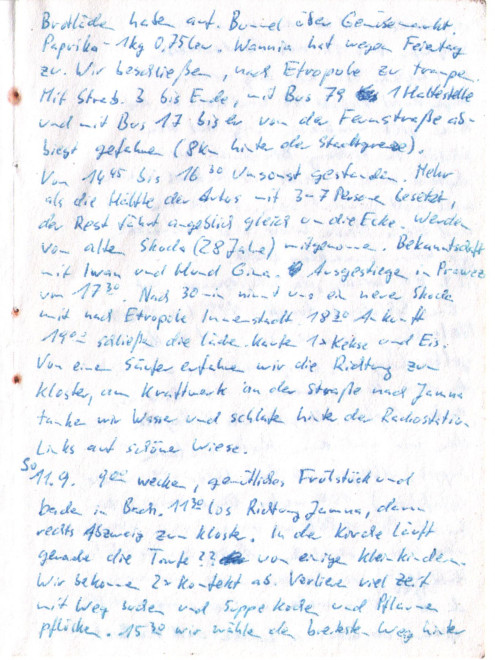 Brotläden haben auf. Bummel über Gemüsemarkt.
Paprika - 1kg 0,75 Lev. Wannia hat wegen Feiertag
zu. Wir beschließen, nach Etropole zu trampen.
Mit Strab. 3 bis Ende, mit Bus 79 1 Haltestelle
und mit Bus 17 bis er von der Fernstraße ab-
biegt gefahren (8km hinter der Stadtgrenze).
Von 14 45 bis 16 30 umsonst gestanden. Mehr
als die Hälfte der Autos mit 3-7 Persone besetzt,
der Rest fährt angeblich gleich um die Ecke. Werden
von alten Skoda (28 Jahre) mitgenommen. Bekanntschaft
mit Iwan und Hund Gina. Ausgestiegen in Prawez
um 17 30. Nach 30 min nimmt uns ein neuer Skoda
mit nach Etropole Innenstadt. 18 30 Ankunft
19 00 schließen die Läden. Kaufe 1x Kekse und Eis.
Von einem Säufer erfahren wir die Richtung zum
Kloster, am Kraftwerk an der Straße nach Jamna
tanken wir Wasser und schlafen hinter der Radiostation
Links auf schöner Wiese.
So
11.9. 9 00 wecken, gemütliches Frühstück und
baden in Bach. 11 30 los Richtung Jamna, dann
rechts Abzweig zum Kloster. In der Kirche läuft
gerade die Taufe ?? von einigen Kleinkindern.
Wir bekommen 2x Konfekt ab. Verlieren viel Zeit
mit Weg suchen und Suppe kochen und Pflaumen
pflücken. 15 30 wir wählen den breitesten Weg hinter